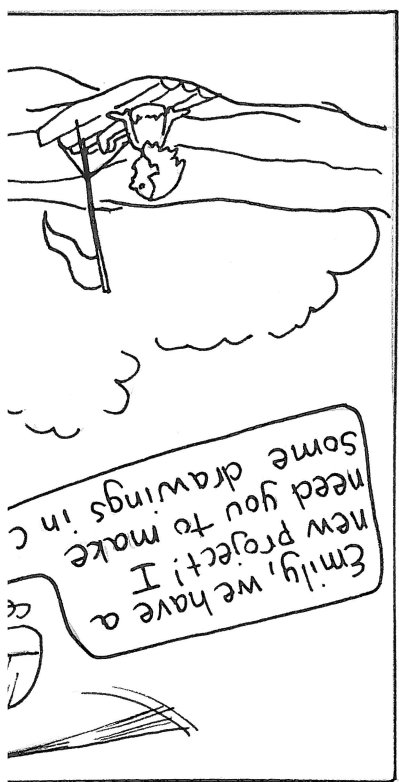 Emily, we have a
new project! I
need you to make
some drawings in C